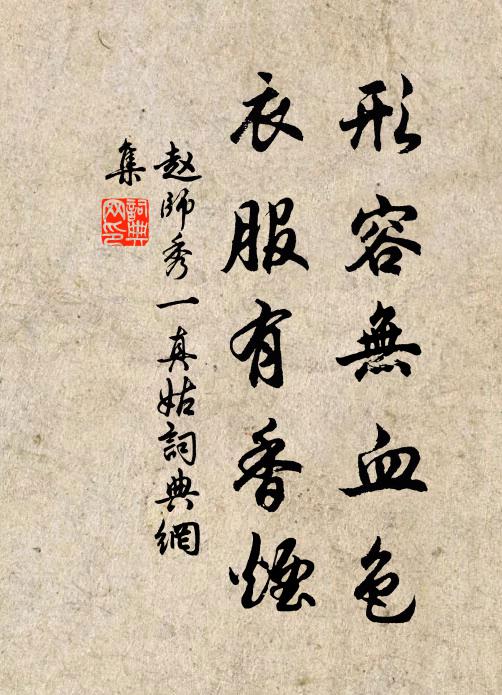 形容無血色
衣服有香煙
赵師秀一真姑詞典網
集
詞典網印